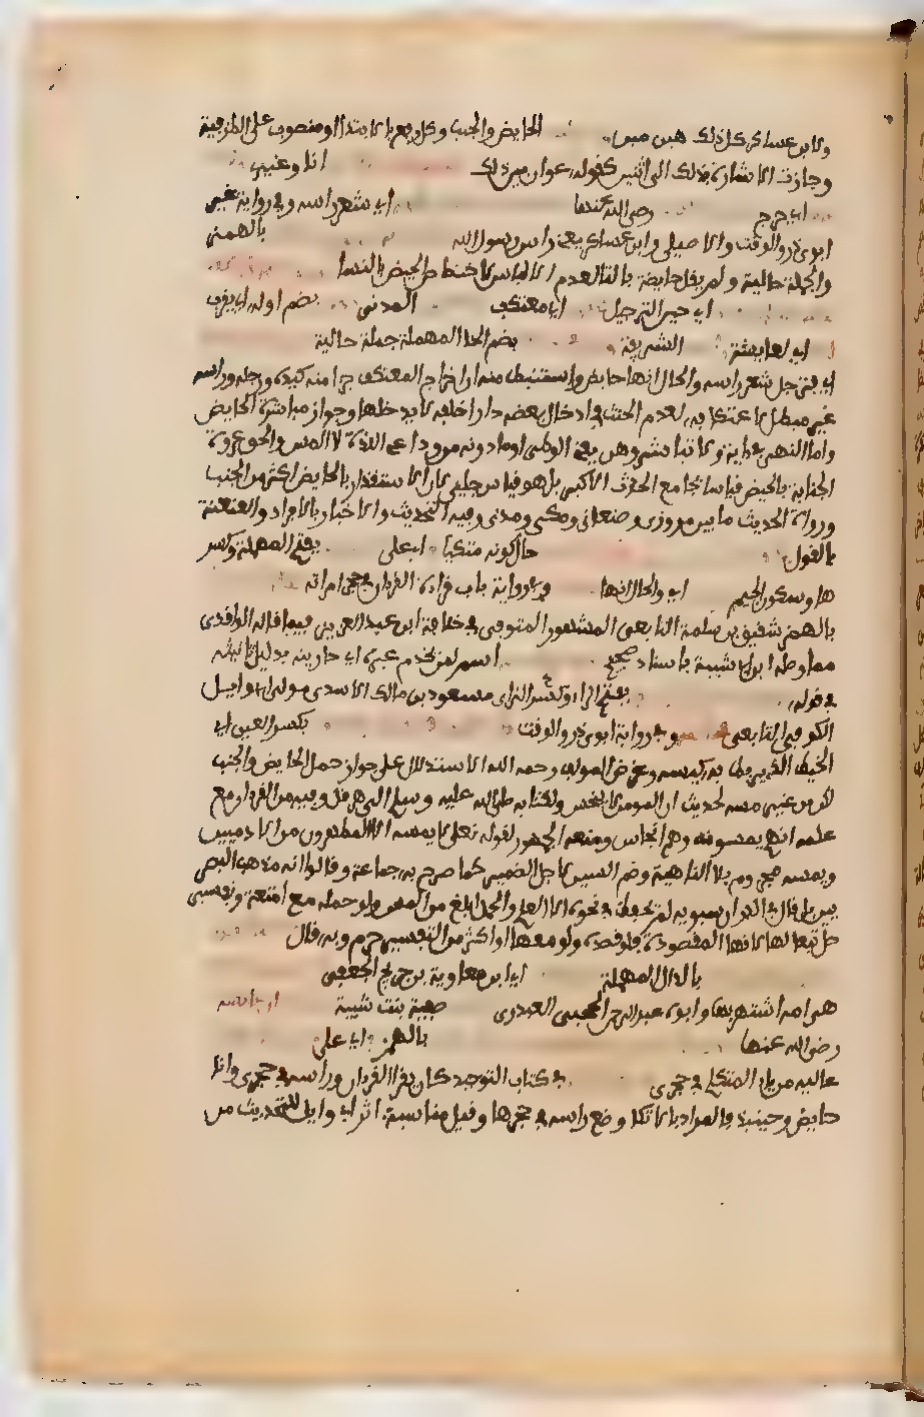 ولابن عساكر كل ذلك هين الحايض والجنب وكل رفع بالابتدا او منصوب على الظرفية
وجازت الاشارة بذلك الى اثنين كقوله عوان بين ذلك انا وغيري
ابن جريج رضى الله عنها اي شعر راسه وفي رواية غير
ابوي ذر والوقت والاصيلي وابن عساكر يعني راس رسول الله بالهمز
والجملة حالية ولم يقل حايضة بالتا لعدم الالباس لاختصاص الحيض بالنسا
اي حين الترجيل اي معتكف المدني بضم اوله اي يقرب
اي لعايشة الشريفة بضم الحا المهملة جملة حالية
اي فترجل شعر راسه والحال انها حايض واستنبط منه ان اخراج المعتكف جزا منه كيده ورجله وراسه
غير مبطل لاعتكافه لعدم الحنث في ادخال بعضه دارا حلف لا يدخلها وجواز مباشرة الحايض
واما النهي في اية ولا تباشروهن يعني الوطى او ما دونه من دواعي اللذة لا المس والحق عروة
الجنابة بالحيض قياسا بجامع الحدث الاكبر بل هو قياس جلي لان الاستقذار بالحايض اكثر من الجنب
ورواة الحديث ما بين مروزى وصنعاني ومكي ومدني وفيه التحديث والاخبار بالافراد والعنعنة
بالقول حال كونه متكيا اي على بفتح المهملة وكسر
ها وسكون الجيم اي والحال انها وفي رواية باب قراءة القران في حجر امراته
بالهمز شقيق بن سلمة التابعي المشهور المتوفى في خلافة ابن عبد العزيز فيما قاله الواقدى
مما وصله ابن ابي شيبة باسناد صحيح اسم لمن يخدم غيره اي جاريته بدليل تانيثه
في قوله بفتح الرا وكسر الزاى مسعود بن مالك الاسدى مولى ابي وايل
الكوفي التابعي وفي رواية ابوي ذر والوقت بكسر العين اي
الخيط الذي يربط به كيسه وغرض المولف رحمه الله الاستدلال على جواز حمل الحايض والجنب
لكن من غير مسه لحديث ان المومن لا ينجس ولكتابه صلى الله عليه وسلم الى هرقل وفيه من القران مع
علمه انهم يمسونه وهم انجاس ومنعه الجمهور لقوله تعلى لا يمسه الا المطهرون من الادميين
ويمسه مجزوم بلا الناهية وضم السين لاجل الضمير كما صرح به جماعة وقالوا انه مذهب البصر
يين بل قال في القران سيبويه لم تحفظ في نحوه الا الضم والحمل ابلغ من المس ولو حمله مع امتعة وتفسير
حل تبعا لها لانها المقصودة فلو قصده ولو معها او اكثر من التفسير حرم وبه قال
بالدال المهملة اي ابن معاوية بن حديج الجعفي
هي امه اشتهر بها وابوه عبد الرحمن الحجبي العبدرى صفية بنت شيبة
رضى الله عنها بالهمز اي على
عاليه من باب المتكي في حجري في كتاب التوحيد كان يقرا القران وراسه في حجري وانا
حايض وحينيذ فالمراد بالاتكا وضع راسه في حجرها وقيل مناسبة اثر ابي وايل للتحديث من